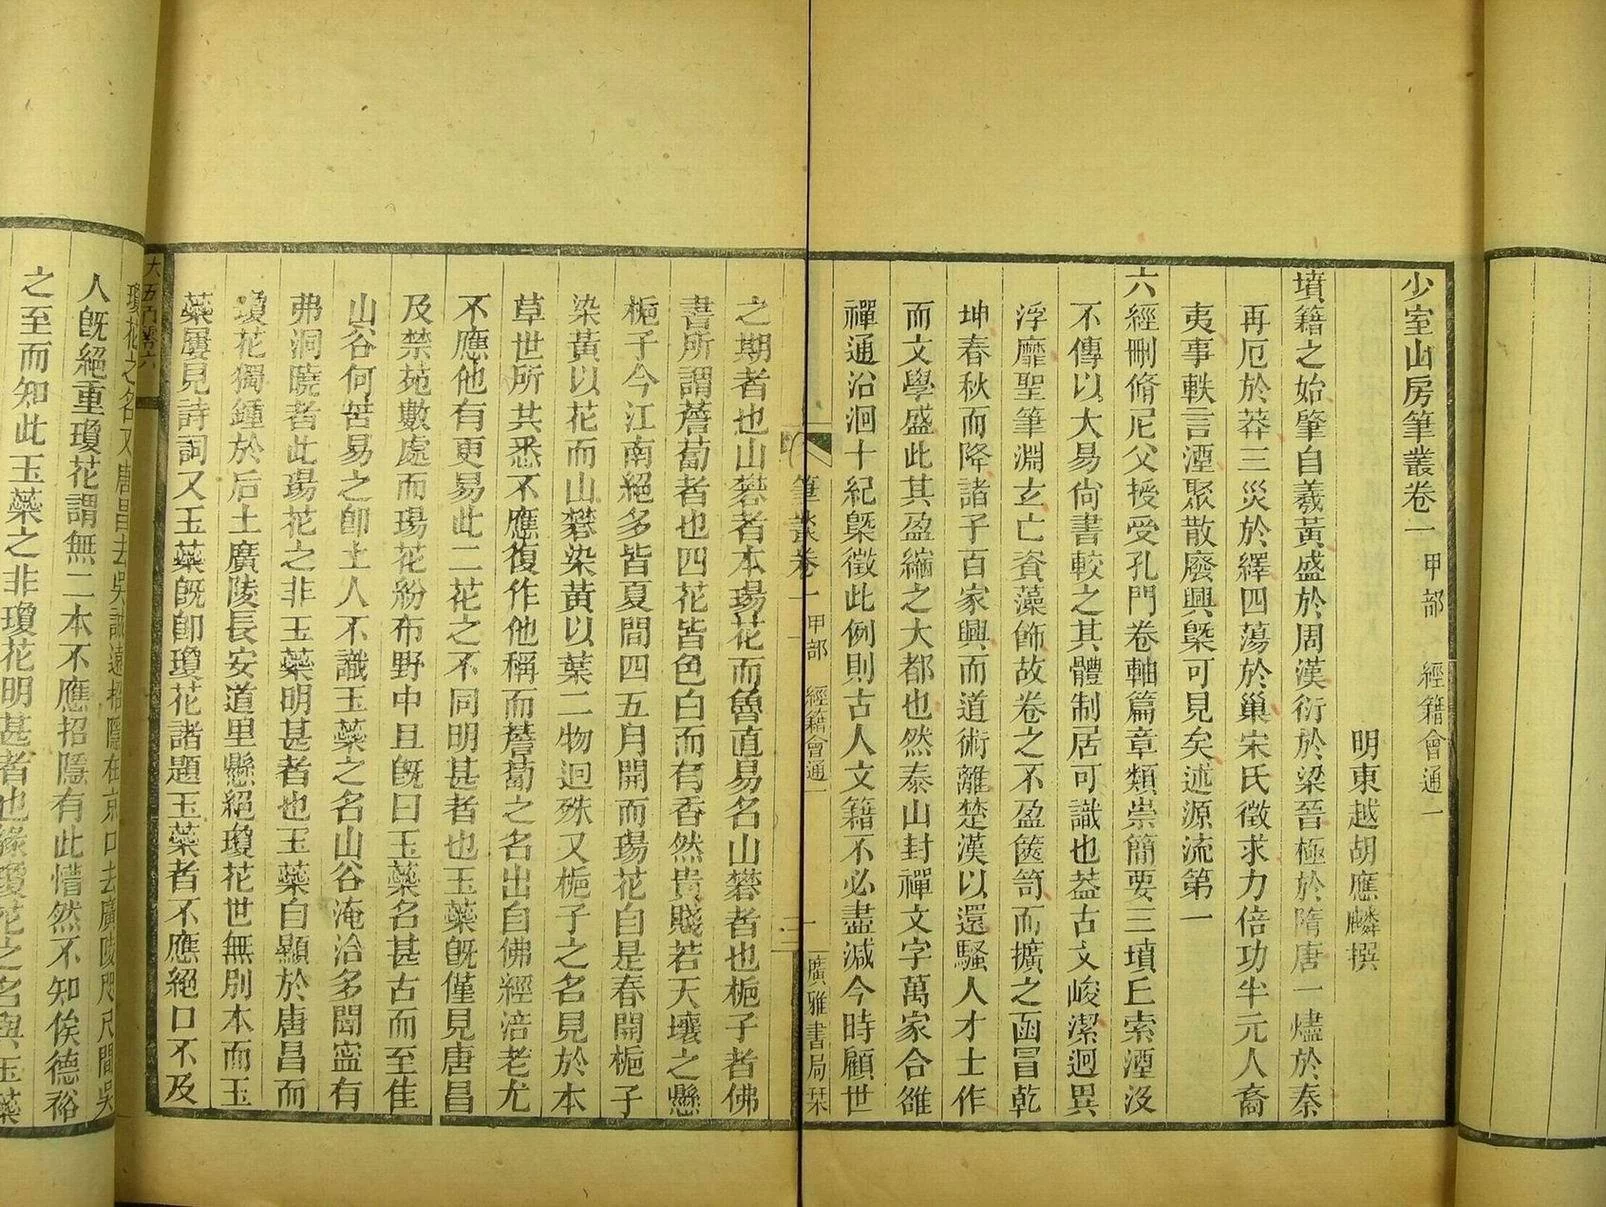 少室山房筆叢卷一　甲部　經籍會通一
明東越胡應麟撰
墳籍之始肇自羲黃盛於周漢衍於梁晉極於隋唐一燼於秦
再厄於莽三災於繹四蕩於巢宋氏徵求力倍功半元人裔
夷事軼言湮聚散廢興槩可見矣述源流第一
六經刪脩尼父授受孔門卷軸篇章類崇簡要三墳丘索湮沒
不傳以大易尙書較之其體制居可識也葢古文峻潔迥異
浮靡聖筆淵玄亡資藻飾故卷之不盈篋笥而擴之函冒乾
坤春秋而降諸子百家興而道術離楚漢以還騷人才士作
而文學盛此其盈縮之大都也然泰山封禪文字萬家合雒
禪通沿洄十紀槩徵此例則古人文籍不必盡減今時顧世
筆叢卷一　甲部　經籍會通一　一　廣雅書局栞
之期者也山礬者本瑒花而魯直易名山礬者也梔子者佛
書所謂薝蔔者也四花皆色白而有香然貴賤若天壤之懸
梔子今江南絕多皆夏間四五月開而瑒花自是春開梔子
染黃以花而山礬染黃以葉二物迥殊又梔子之名見於本
草世所共悉不應復作他稱而薝蔔之名出自佛經涪老尤
不應他有更易此二花之不同明甚者也玉蘂旣僅見唐昌
及禁苑數處而瑒花紛布野中且旣曰玉蘂名甚古而至隹
山谷何苦易之卽土人不識玉蘂之名山谷淹洽多聞寍有
弗洞曉者此瑒花之非玉蘂明甚者也玉蘂自顯於唐昌而
瓊花獨鍾於后土廣陵長安道里懸絕瓊花世無別本而玉
蘂屢見詩詞又玉蘂旣卽瓊花諸題玉蘂者不應絕口不及
瓊花之名又唐昌去吳誠遠招隱在京口去廣陵咫尺間吳
人旣絕重瓊花謂無二本不應招隱有此懵然不知俟德裕
之至而知此玉蘂之非瓊花明甚者也緣瓊花之名與玉蘂